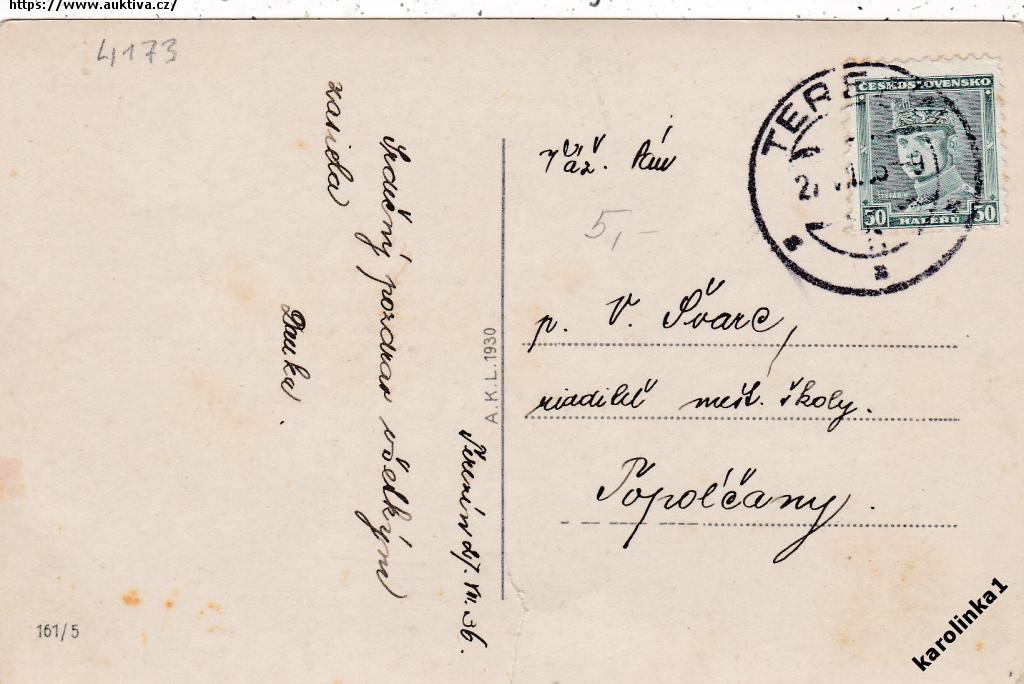 https://www.auktiva.cz/
4173
Terezín 27. VII. 36.
Srdečný pozdrav všetkým
zasiela
Danka.
A.K.L. 1930
Váž. Pán
5,-
p. V. Švarc,
riaditeľ mešt. školy.
Topoľčany.
TERE
ČESKOSLOVENSKO
ŠTEFÁNIK
50 HALÉŘŮ 50
161/5
karolinka1